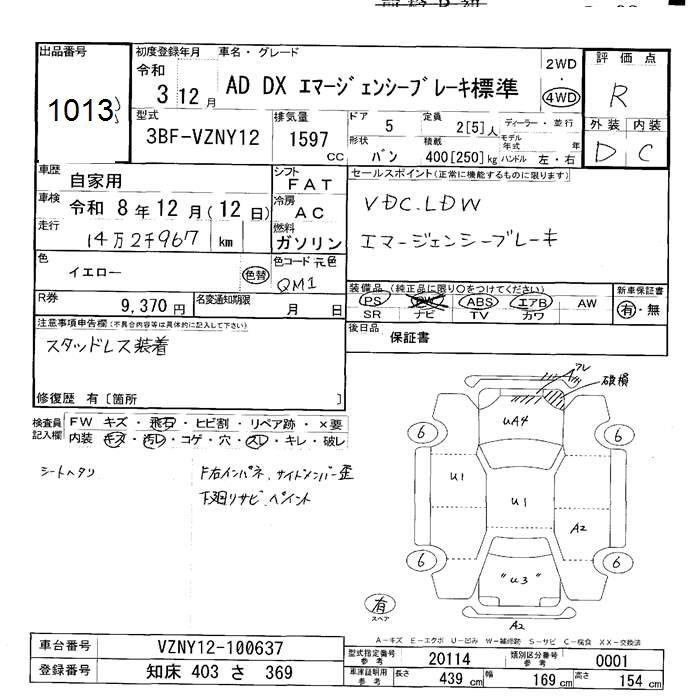 出品番号
1013
初度登録年月
令和
3 12月
車名・グレード
AD DX エマージェンシーブレーキ標準
2WD
・
4WD
評価点
R
外装 内装
D C
型式
3BF-VZNY12
排気量
1597
CC
ドア 5
定員 2[5]人
ディーラー・並行
形状 バン
積載 400[250]kg
モデル年式 年
ハンドル 左・右
車歴 自家用
車検 令和 8年 12月(12日)
走行 14万2千967 km
シフト FAT
冷房 AC
燃料 ガソリン
セールスポイント(正常に機能するものに限ります)
VDC.LDW
エマージェンシーブレーキ
色 イエロー 色替
色コード 元色
QM1
R券 9,370円
名変通知期限 月 日
装備品(純正品に限り○をつけてください)
PS PW ABS エアB AW
SR ナビ TV カワ
新車保証書
有・無
注意事項申告欄(不具合内容等は具体的に記入して下さい)
スタッドレス装着
後日品 保証書
修復歴 有[箇所 ]
検査員記入欄
FW キズ・飛石・ヒビ割・リペア跡・×要
内装 キズ・汚レ・コゲ・穴・スレ・キレ・破レ
シートヘタリ
F右インパネ、サイドメンバー歪
下廻リサビ.ペイント
破損
UA4
6
6
U1
U1
A2
6
6
"U3"
有
スペア
A2
A-キズ E-エクボ U-凹み W-補修跡 S-サビ C-腐食 XX-交換済
車台番号 VZNY12-100637
登録番号 知床 403 さ 369
型式指定番号 参考 20114
類別区分番号 参考 0001
車庫証明用 参考 長さ 439cm 幅 169cm 高さ 154cm